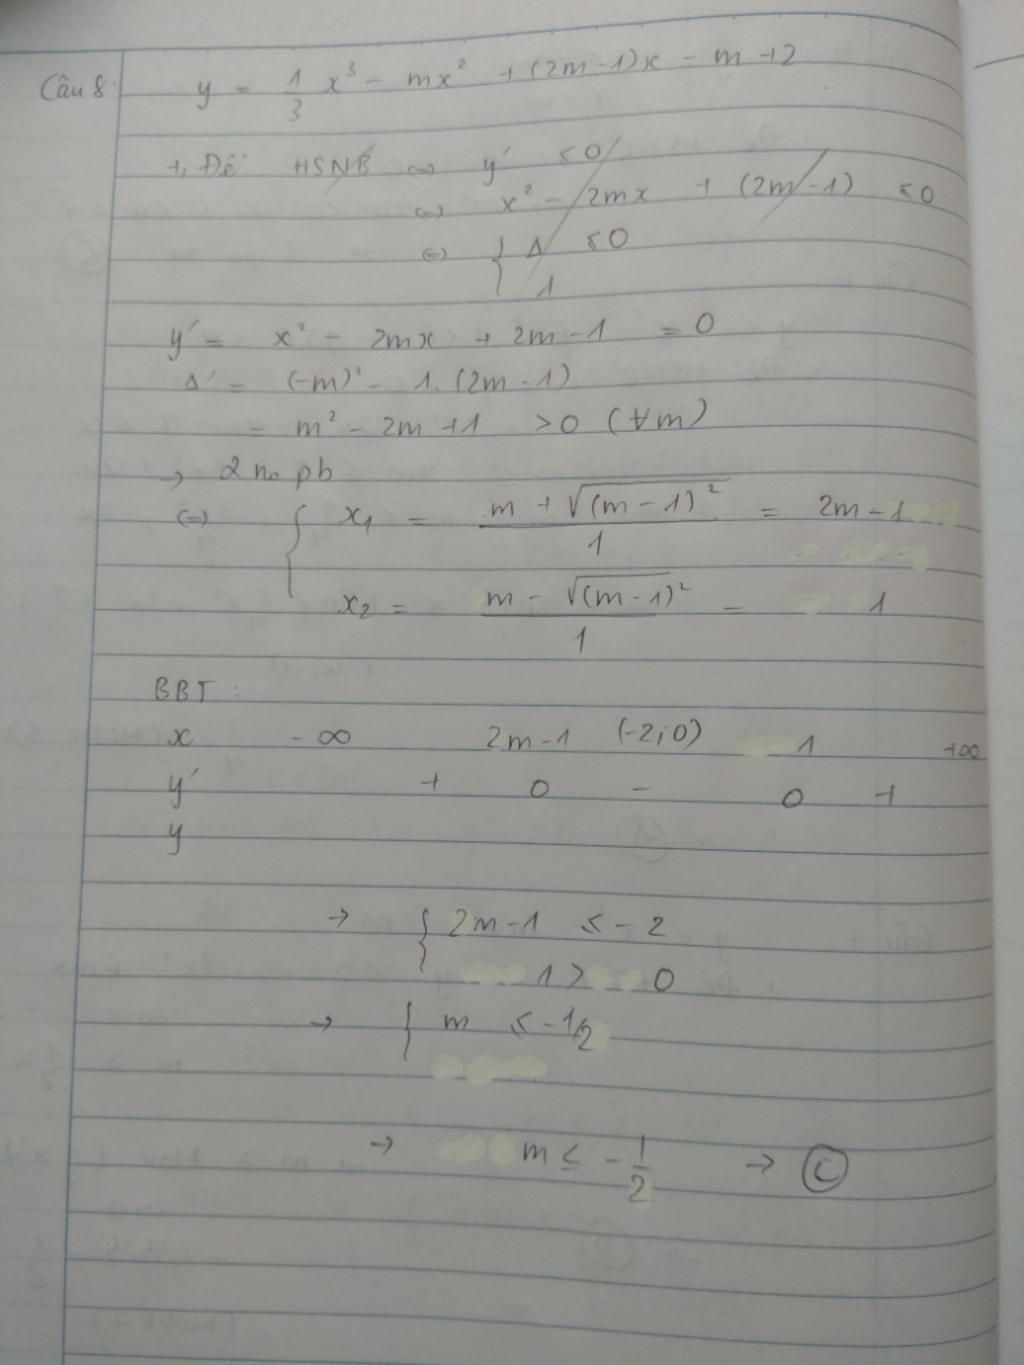 Câu 8:
y = 1/3 x³ - mx² + (2m-1)x - m + 2
+, Để HSNB ⇔ y' ≤ 0
⇔ x² - 2mx + (2m-1) ≤ 0
⇔ { Δ ≤ 0
1
y' = x² - 2mx + 2m - 1 = 0
Δ' = (-m)² - 1. (2m - 1)
= m² - 2m + 1 > 0 (∀m)
→ 2 no pb
⇔ { x₁ = (m + √(m-1)²)/1 = 2m - 1
x₂ = (m - √(m-1)²)/1 = 1
BBT :
x -∞ 2m-1 (-2;0) 1 +∞
y' + 0 - 0 +
y
→ { 2m-1 ≤ -2
1 > 0
→ { m ≤ -1/2
→ m ≤ -1/2 → C